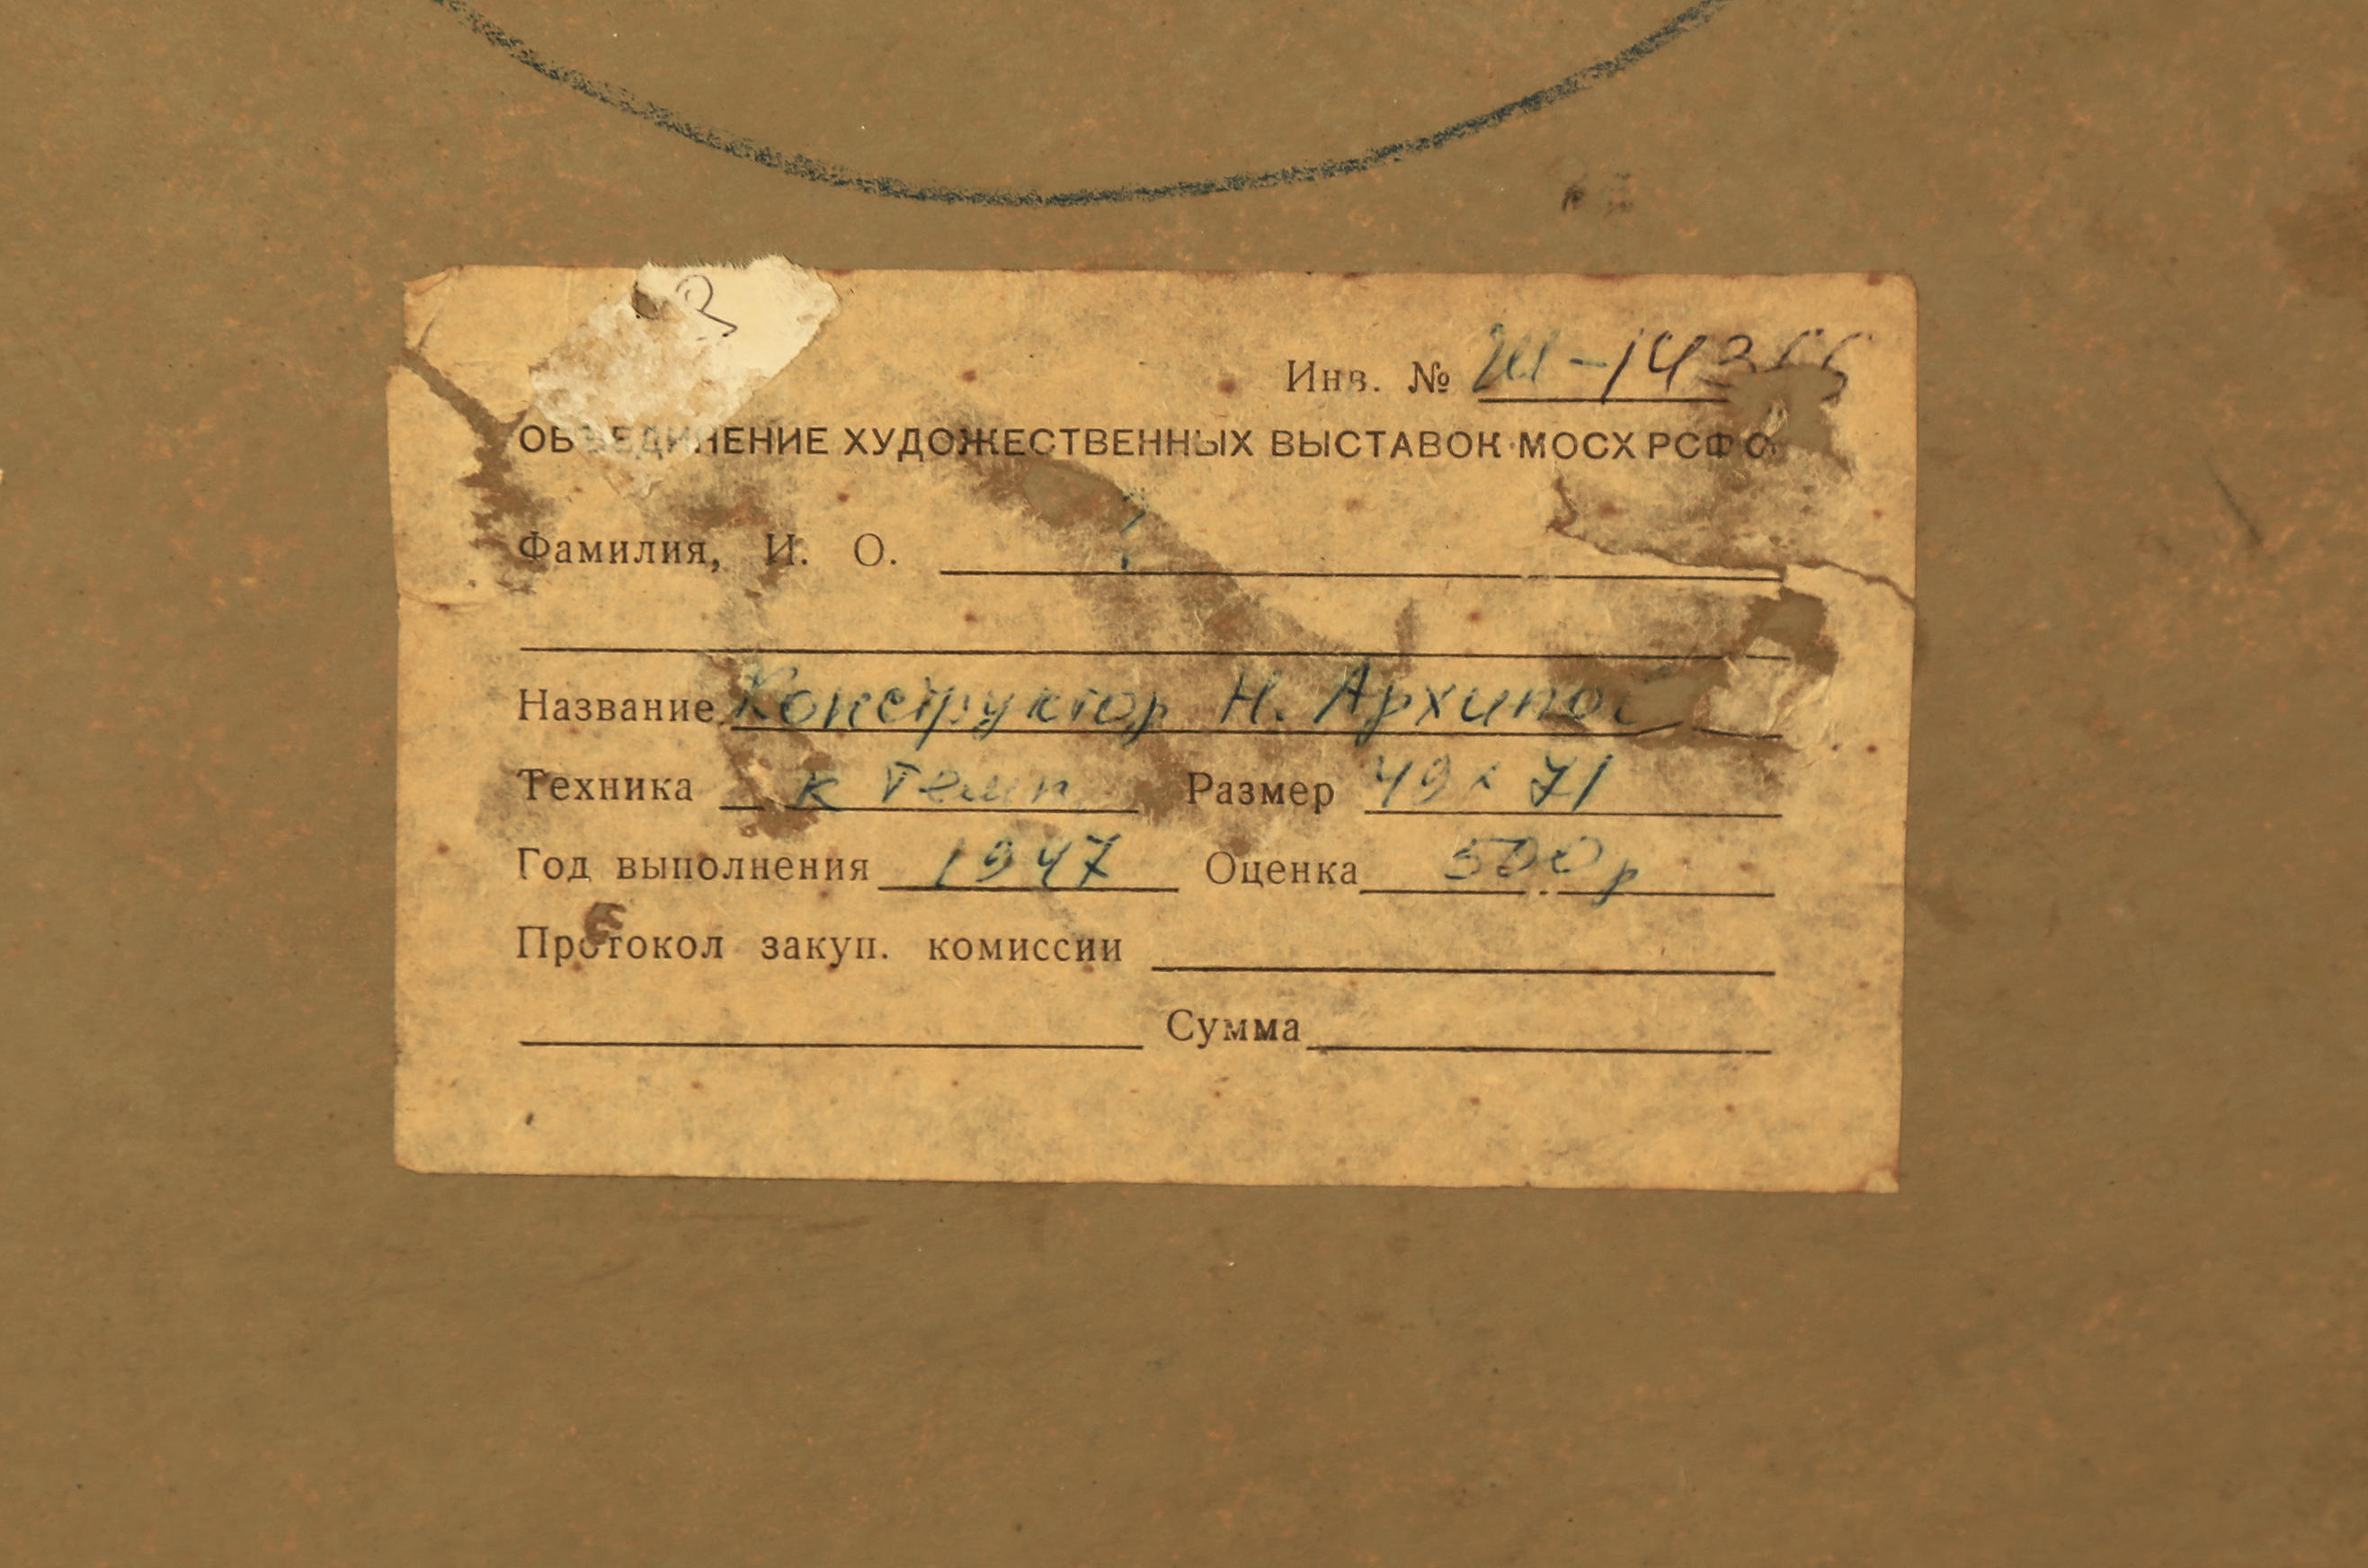 Инв. №
ОБЪЕДИНЕНИЕ ХУДОЖЕСТВЕННЫХ ВЫСТАВОК МОСХ РСФС
Фамилия, И. О. ?
Название Конструктор Н. Архипов
Техника к темп Размер 49 х 71
Год выполнения 1947 Оценка 500 р
Протокол закуп. комиссии
Сумма